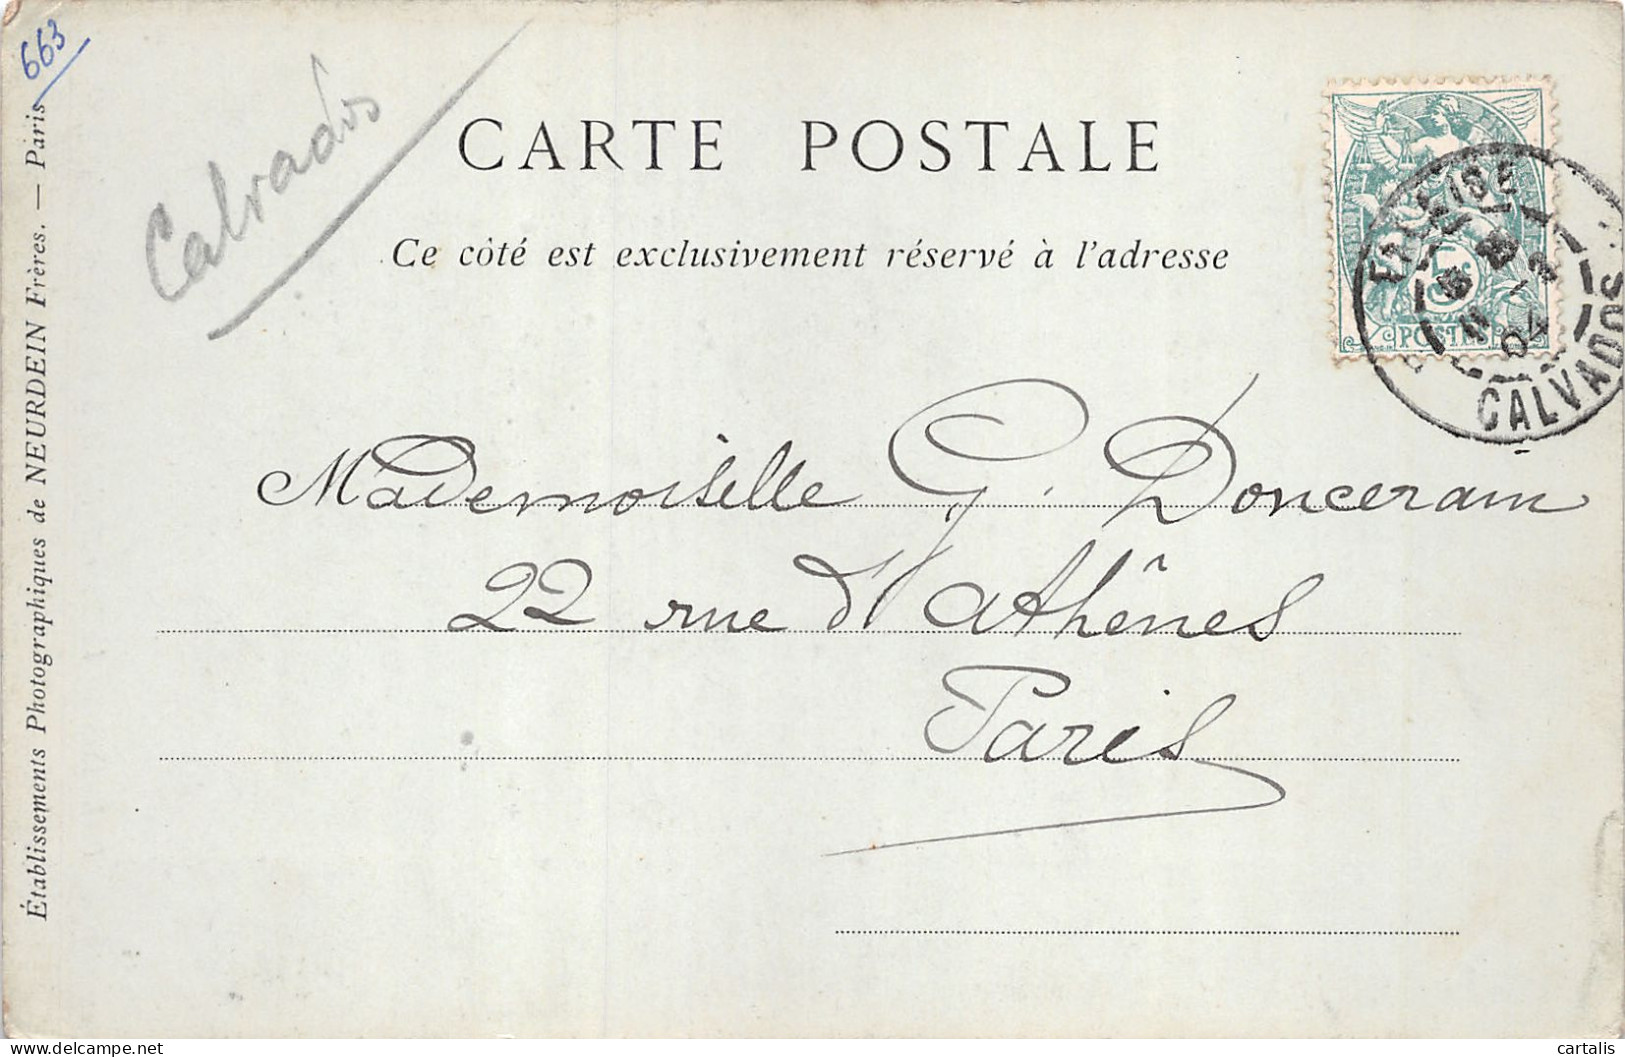 663
Calvados
CARTE POSTALE
Ce côté est exclusivement réservé à l'adresse
5c
POSTES
04
CALVADOS
Mademoiselle G. Donceram
22 rue d'Athênes
Paris
Établissements Photographiques de NEURDEIN Frères. — Paris
www.delcampe.net
cartalis